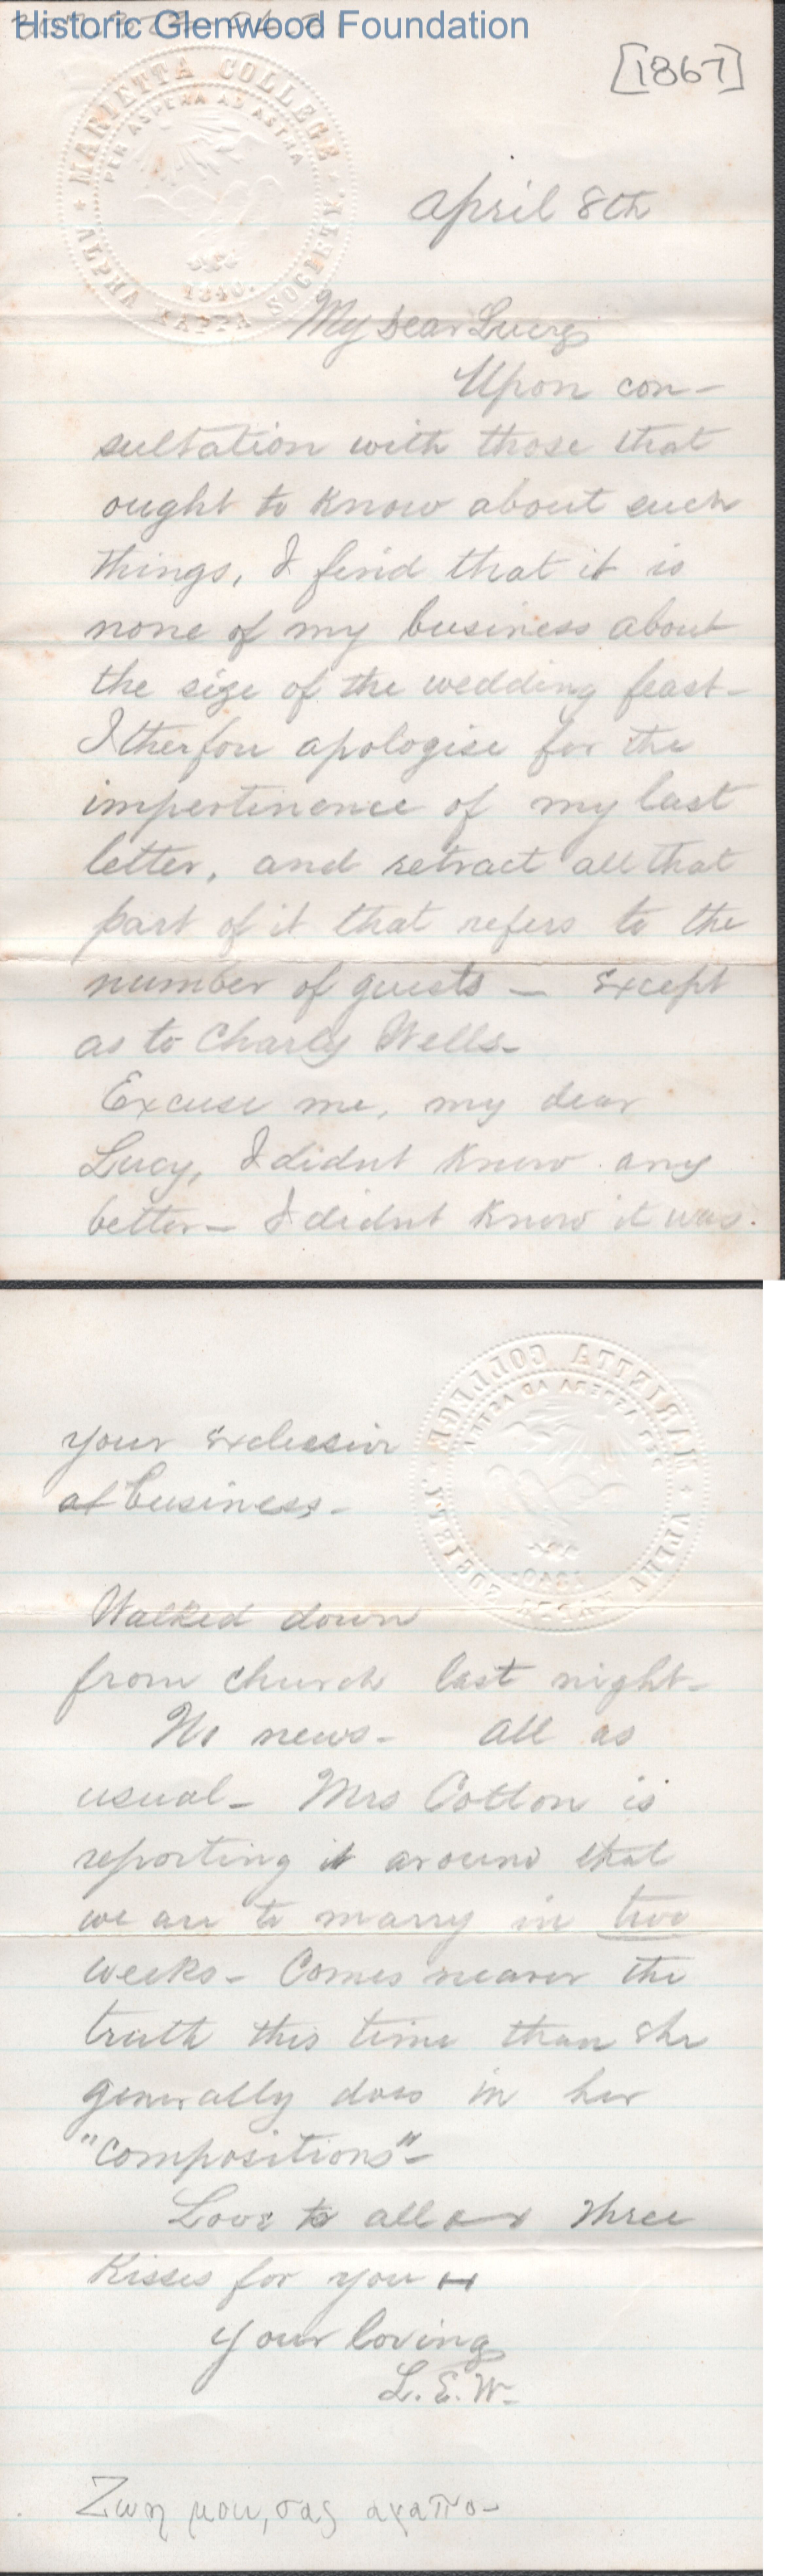 Historic Glenwood Foundation
[1867]
MARIETTA COLLEGE
PER ASPERA AD ASTRA
ALPHA KAPPA SOCIETY
1840.
April 8th
My Dear Lucy
Upon con-
sultation with those that
ought to know about such
things, I find that it is
none of my business about
the size of the wedding feast-
I therfore apologise for the
impertinence of my last
letter, and retract all that
part of it that refers to the
number of guests — Except
as to Charly Wells-
Excuse me, my dear
Lucy, I didnt know any
better- I didnt know it was
your exclusive
business-
Walked down
from church last night-
No news- all as
usual- Mrs Cotton is
reporting it around that
we are to marry in two
weeks- Comes nearer the
truth this time than she
generally does in her
"Compositions"-
Love to all Three
Kisses for you
Your loving
L.E.W-
Ζωη μου, σας αγαπο-